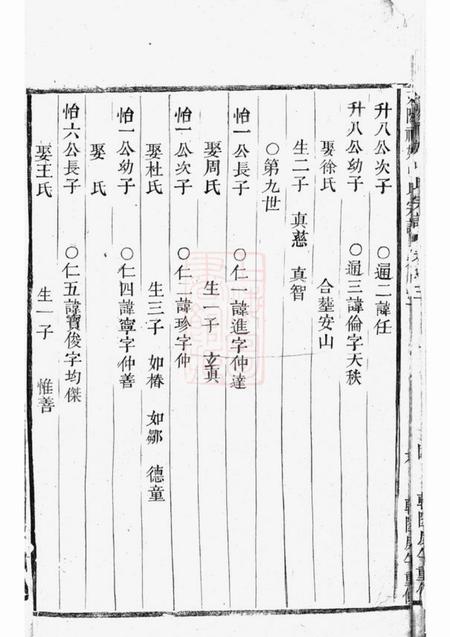 升八公次子 〇通二諱任
升八公幼子 〇通三諱倫字天秩
娶徐氏 合塟安山
生二子 真慈 真智
〇第九世
怡一公長子 〇仁一諱進字仲達
娶周氏 生一子 玄真
怡一公次子 〇仁二諱珍字仲
娶杜氏 生三子 如椿 如鄒 德童
怡一公幼子 〇仁四諱寧字仲善
娶 氏
怡六公長子 〇仁五諱寶俊字均傑
娶王氏 生一子 惟善